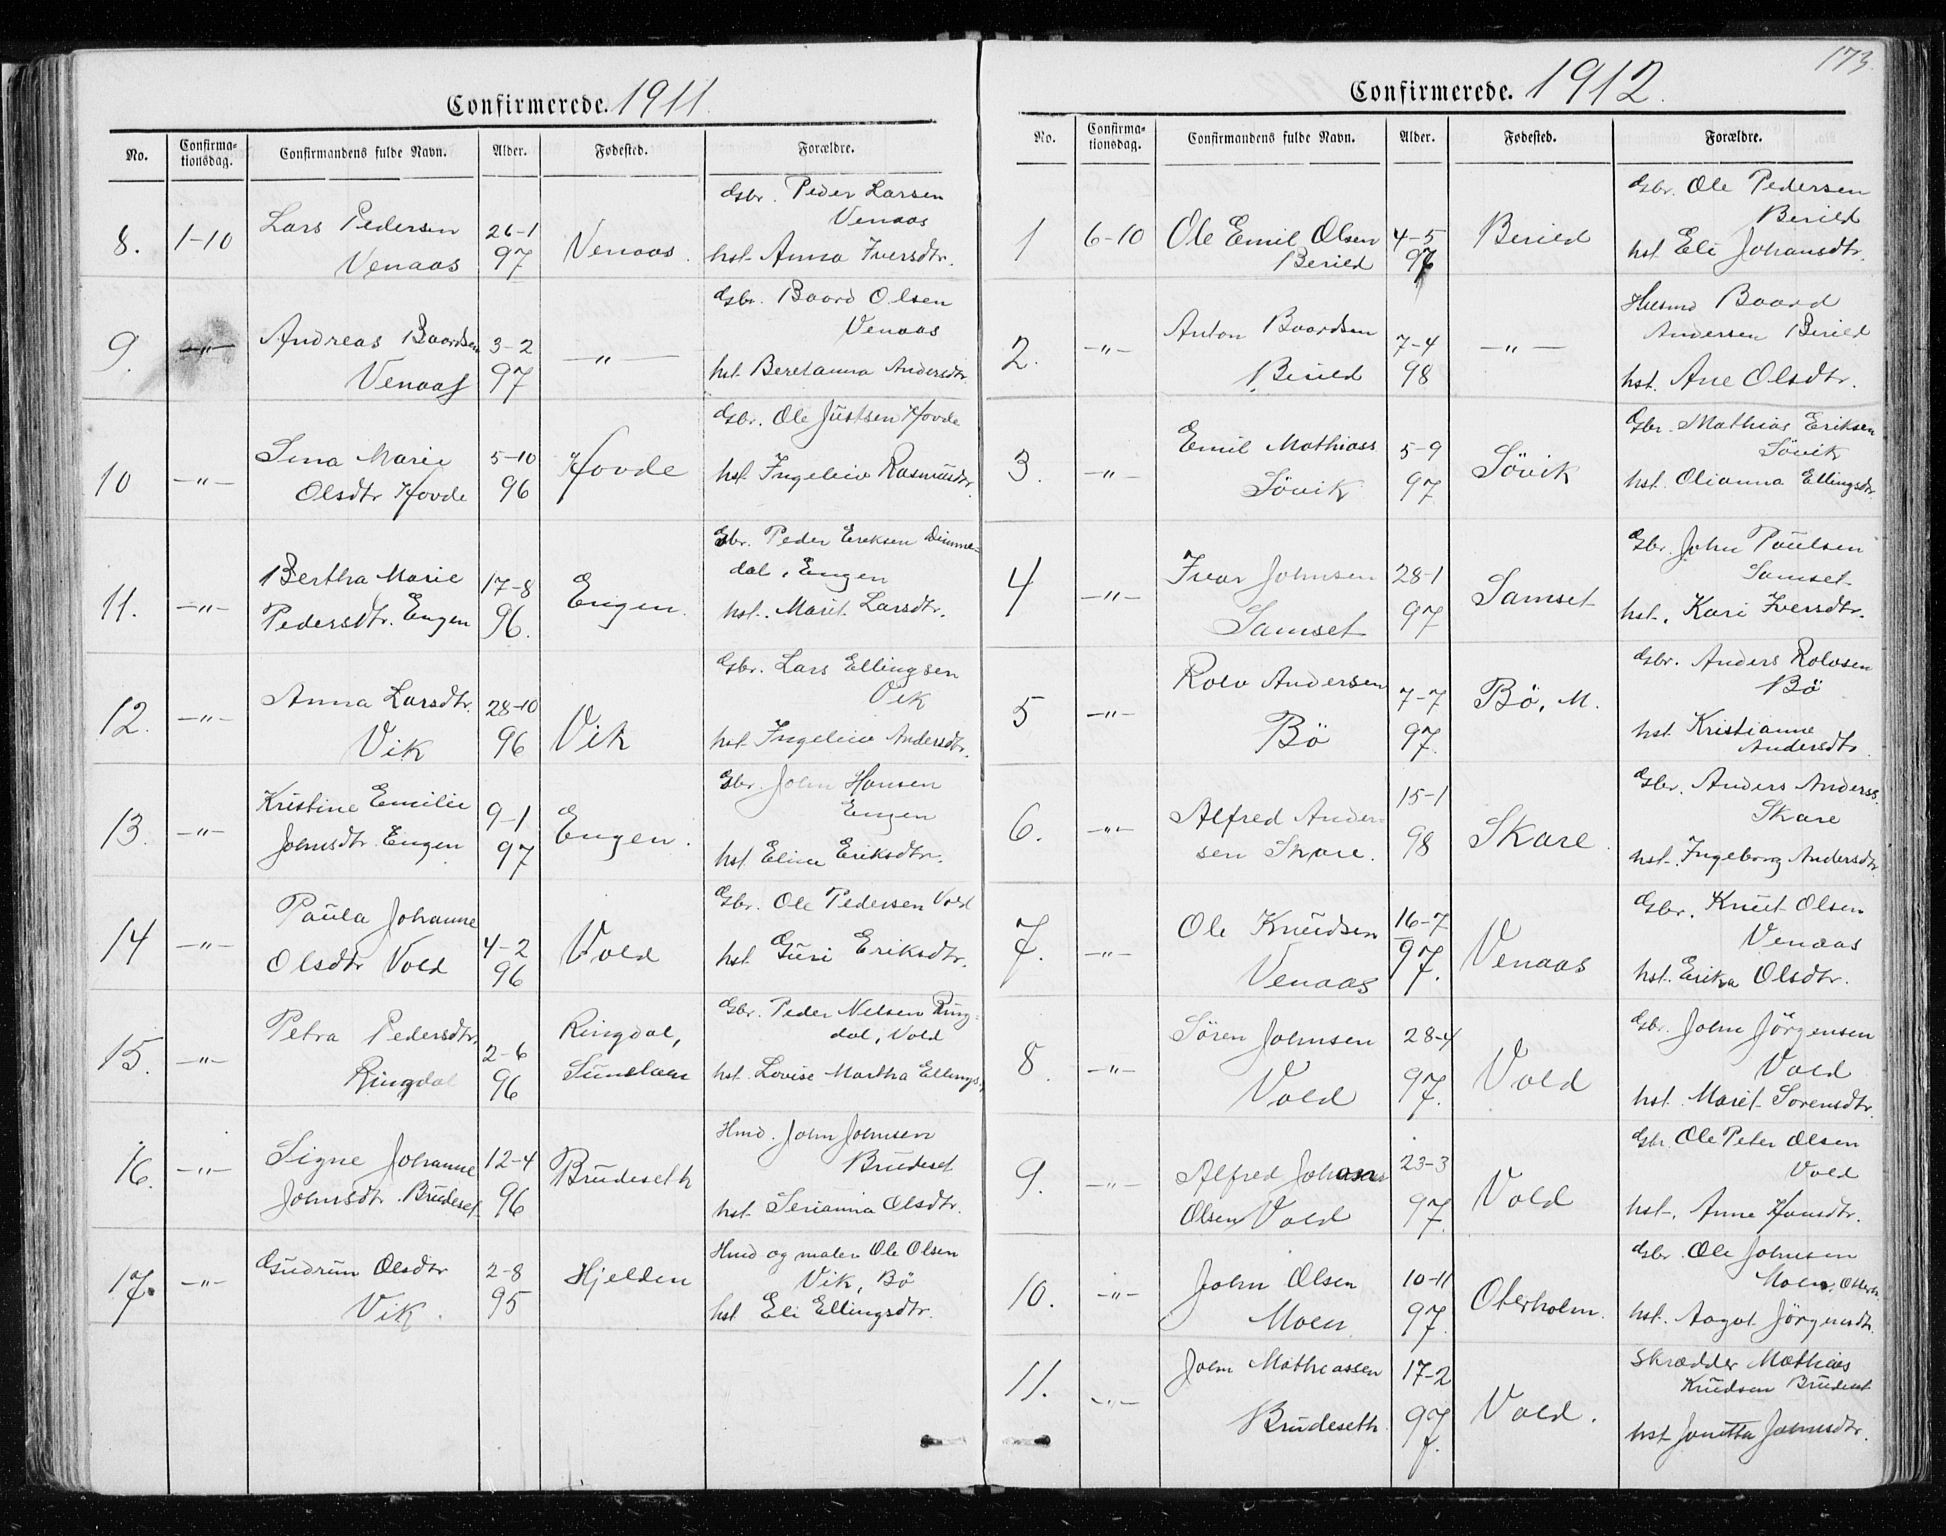 Confirmerede. 1911.
No. Confirma-tionsdag. Confirmandens fulde Navn. Alder. Fødested. Forældre.
8. 1-10 Lars Pedersen Venaas 26-1 97 Venaas. Gbr. Peder Larsen Venaas hst. Anna Iversdtr.
9. -"- Andreas Baardsen Venaas 3-2 97 -"- Gbr. Baard Olsen Venaas hst. Beretanna Andersdtr.
10 -"- Sina Marie Olsdtr Hovde 5-10 96 Hovde Gbr. Ole Justsen Hovde hst. Ingeleiv Rasmusdtr.
11. -"- Bertha Marie Pedersdtr. Engen 17-8 96. Engen. Gbr. Peder Eriksen Dimme-dal, Engen hst. Marit Larsdtr.
12. -"- Anna Larsdtr. Vik 28-10 96 Vik Gbr. Lars Ellingsen Vik hst. Ingeleiv Andersdtr.
13. -"- Kristine Emilie Johnsdtr. Engen 9-1 97 Engen. Gbr. John Hansen Engen hst. Eline Eriksdtr.
14 -"- Paula Johanne Olsdtr Vold 4-2 96 Vold Gbr. Ole Pedersen Vold hst. Guri Eriksdtr.
15. -"- Petra Pedersdtr. Ringdal 2-6 96 Ringdal, Gbr. Peder Nilsen Ring-dal, Vold hst. Lovise Martha Ellings.
16. -"- Signe Johanne Johnsdtr. Brudeset 12-4 96 Brudeseth Hmd. John Johnsen Brudeset hst. Serianna Olsdtr.
17. -"- Gudrun Olsdtr Vik. 2-8 95 Hjelden Hmd og maler Ole Olsen Vik, Bø hst. Eli Ellingsdtr.
173.
Confirmerede. 1912.
No. Confirma-tionsdag. Confirmandens fulde Navn. Alder. Fødested. Forældre.
1 6-10 Ole Emil Olsen Berild 4-5 97 Berild Gbr. Ole Pedersen Berild hst. Eli Johansdtr.
2. -"- Anton Baardsen Berild 7-4 98 -"- Husmd Baard Andersen Berild hst. Ane Olsdtr.
3. -"- Emil Mathiass Søvik 5-9 97 Søvik Gbr. Mathias Eriksen Søvik hst. Olianna Ellingsdtr
4 -"- Ivar Johnsen Samset 28-1 97 Samset Gbr. John Paulsen Samset hst. Kari Iversdtr.
5 -"- Rolv Andersen Bø 7-7 97. Bø, M. Gbr. Anders Rolvsen Bø hst. Kristianne Andersdtr
6. -"- Alfred Ander-sen Skare. 15-1 98 Skare. Gbr. Anders Anderss. Skare hst. Ingeborg Andersdtr
7. -"- Ole Knudsen Venaas 16-7 97. Venaas Gbr. Knut Olsen Venaas hst. Erika Olsdtr.
8. -"- Søren Johnsen Vold 28-4 97. Vold Gbr. John Jørgensen Vold hst. Marit Sørensdtr.
9. -"- Alfred Johan Olsen Vold 23-3 97. Vold Gbr. Ole Peter Olsen Vold hst. Anne Hansdtr.
10. -"- John Olsen Moen 10-11 97. Oterholm. Gbr. Ole Johnsen Moen, Oterh. hst. Aagot Jørgensdtr.
11. -"- John Mathiassen Brudeseth 17-2 97. Vold. Skrædder Mathias Knudsen Brudeset hst. Jonetta Johnsdtr.